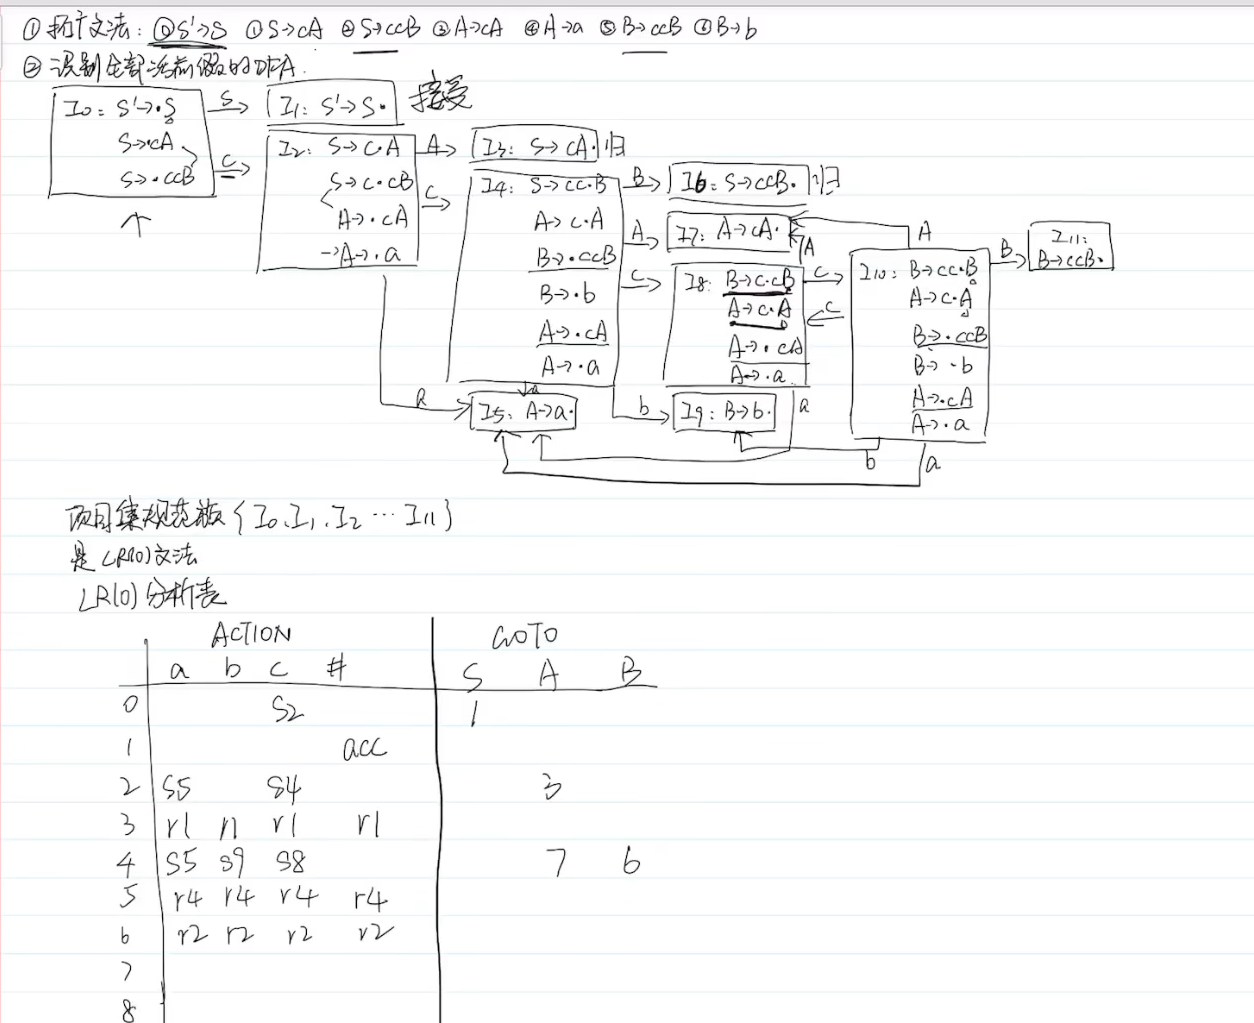 ① 拓广文法: ⓪S'→S ①S→cA ②S→ccB ③A→cA ④A→a ⑤B→ccB ⑥B→b
② 识别全部活前缀的DFA.
I0: S'→·S
S→·cA
S→·ccB
S
c
I1: S'→S·
接受
I2: S→c·A
S→c·cB
A→·cA
→A→·a
A
c
a
I3: S→cA· 归
I4: S→cc·B
A→c·A
B→·ccB
B→·b
A→·cA
A→·a
B
A
c
a
b
I5: A→a·
I6: S→ccB· 归
I7: A→cA·
A
I8: B→c·cB
A→c·A
A→·cA
A→·a
c
c
a
I9: B→b·
I10: B→cc·B
A→c·A
B→·ccB
B→·b
A→·cA
A→·a
A
B
b
a
I11:
B→ccB·
项目集规范族{I0、I1、I2 ··· I11}
是LR(0)文法
LR(0)分析表
ACTION GOTO
a b c # S A B
0 S2 1
1 acc
2 S5 S4 3
3 r1 r1 r1 r1
4 S5 S9 S8 7 6
5 r4 r4 r4 r4
6 r2 r2 r2 r2
7
8